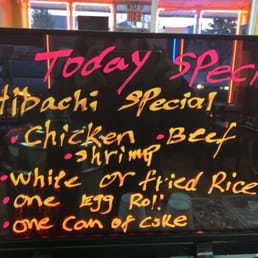 Today Speci
Hibachi Special
• Chicken • Beef
• Shrimp
• White or fried Rice
• one Egg Roll
• one Can of Coke